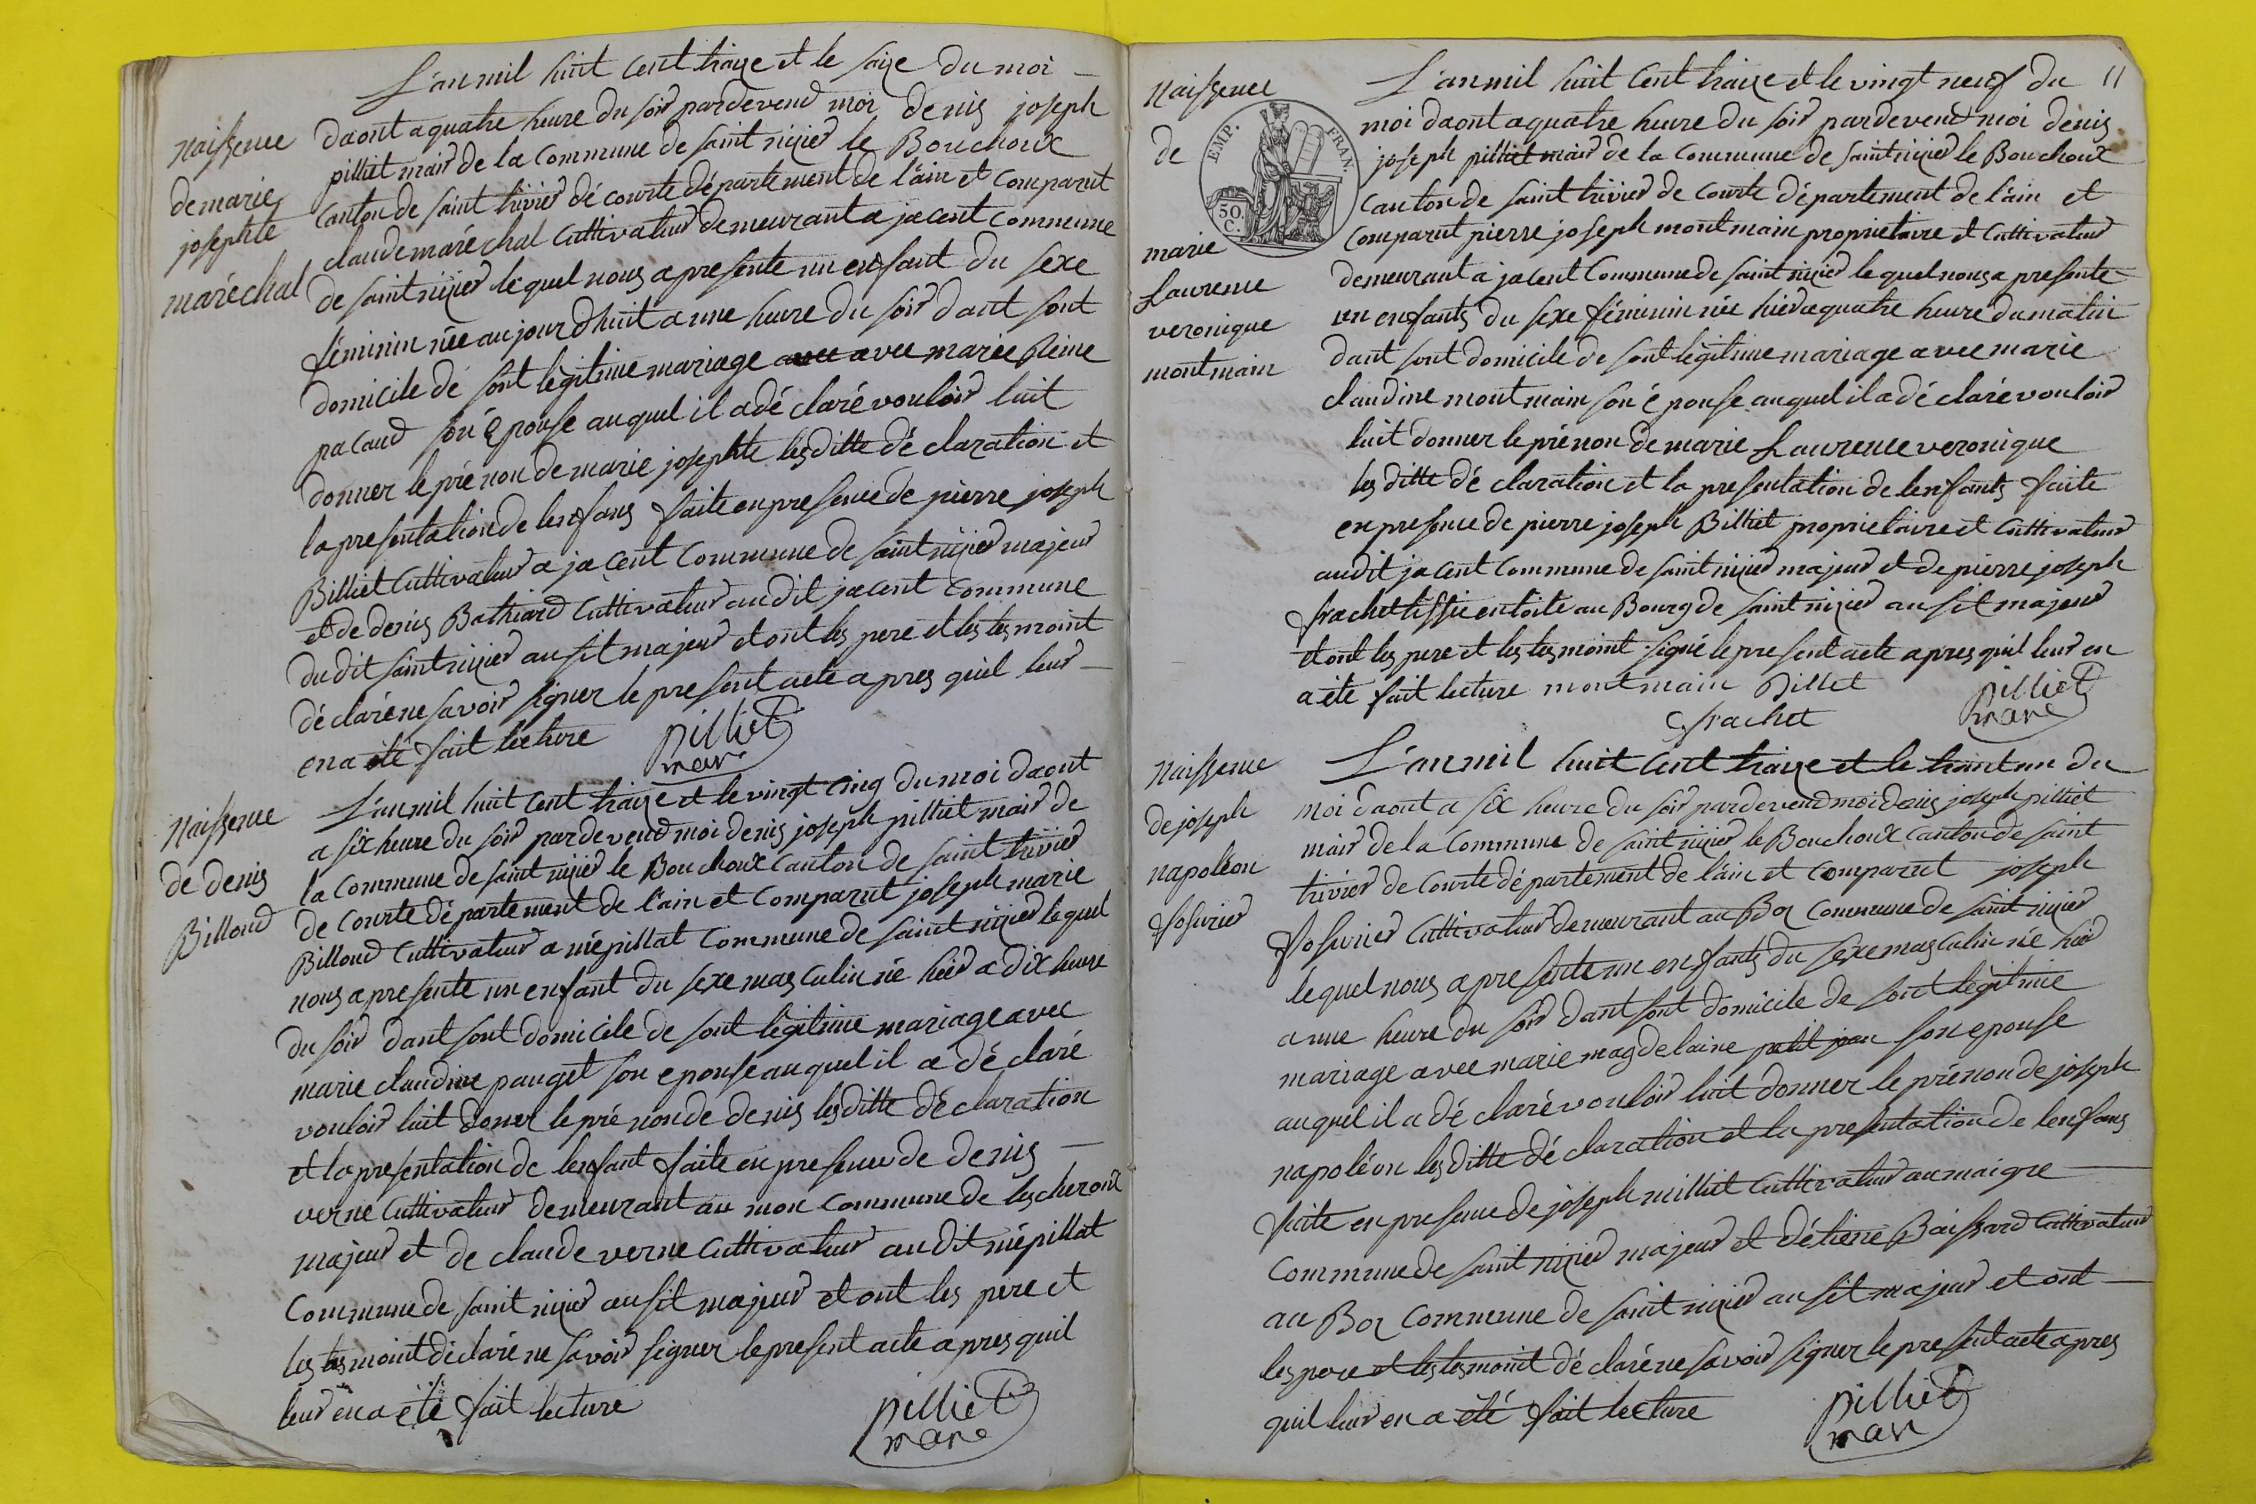 L'an mil huit cent traize et le saize du moi
daont a quatre heure du soir pardevend moi denis joseph
pilliet mair de la Commune de saint nizier le Bouchoux
Canton de saint trivier dé courte département de l'ain et Comparut
claude maréchal Cultivateur demeurant a jacent Commune
de saint nizier lequel nous a presente un enfant du sexe
féminin née aujourdhuit a une heure du soir dant sont
domicile dé sont légitime mariage avec avec marie Reine
pacaud son épouse auquel il a déclaré vouloir luit
donner le prénon de marie josephte lesditte déclaration et
la presentation de lenfans faite en presence de pierre joseph
Billiet Cultivateur a jacent Commune de saint nizier majeur
et de denis Bathiard Cultivateur audit jacent Commune
dudit saint nizier ausit majeur et ont les pere et les tesmoint
déclaré ne savoir signer le present acte apres quil leur
en a été fait lecture pilliet
mare
Naissence
de marie
josephte
maréchal
L'an mil huit cent traize et le vingt cinq du moi daont
a six heure du soir pardevend moi denis joseph pilliet mair de
la Commune de saint nizier le Bouchoux Canton de saint trivier
de Courte département de l'ain et Comparut joseph marie
Billoud Cultivateur a népillat Commune de saint nizier lequel
nous a presente un enfant du sexe masculin né hier a dix heure
du soir dant sont domicile de sont légitime mariage avec
marie claudine pauget son epouse auquel il a déclaré
vouloir luit doner le prénon de denis lesditte déclaration
et la presentation de lenfant faite en presence de denis
verne Cultivateur demeurant au mon Commune de lescheroux
majeur et de claude verne Cultivateur audit népillat
Commune de saint nizier ausit majeur et ont les pere et
les tesmoint déclaré ne savoir signer le present acte apres quil
leur en a été fait lecture pilliet
mare
Naissence
de denis
Billoud
11
L'an mil huit Cent traize et le vingt neuf du
moi daont a quatre heure du soir pardevend moi denis
joseph pilliet mair de la Commune de saint nizier le Bouchoux
Canton de saint trivier de Courte département de l'ain et
Comparut pierre joseph montmain proprietaire et Cultivateur
demeurant a jacent Commune de saint nizier lequel nous a presente
un enfants du sexe féminin née hier a quatre heure du matin
dant sont domicile de sont légitime mariage avec marie
claudine montmain son épouse auquel il a déclaré vouloir
luit donner le prénon de marie Laurence veronique
les ditte déclaration et la presentation de lenfants faite
en presence de pierre joseph Billiet proprietaire et Cultivateur
audit jacent Commune de saint nizier majeur et de pierre joseph
frachet tissie en toile au Bourg de saint nizier ausit majeur
et ont les pere et les tesmoint signé le present acte apres quil leur en
a été fait lecture montmain Billet pilliet
frachet mare
Naissence
de
marie
Laurence
veronique
montmain
EMP. FRAN.
50.
C.
L'an mil huit Cent traize et le trant un du
moi daont a six heure du soir pardevend moi denis joseph pilliet
mair de la Commune de saint nizier le Bouchoux Canton de saint
trivier de Courte département de l'ain et Comparut joseph
fosurier Cultivateur demeurant au Boz Commune de saint nizier
lequel nous a presente un enfants du sexe masculin né hier
a une heure du soir dant sont domicile de sont légitime
mariage avec marie magdelaine petit jean son epouse
auquel il a déclaré vouloir luit donner le prénon de joseph
napoléon lesditte déclaration et la presentation de lenfans
faite en presence de joseph milliet Cultivateur au maigre
Commune de saint nizier majeur et détiene Baissard Cultivateur
au Boz Commune de saint nizier ausit majeur et ont
les pere et les tesmoint déclaré ne savoir signer le present acte apres
quil leur en a été fait lecture pilliet
mare
Naissence
de joseph
napoléon
fosurier